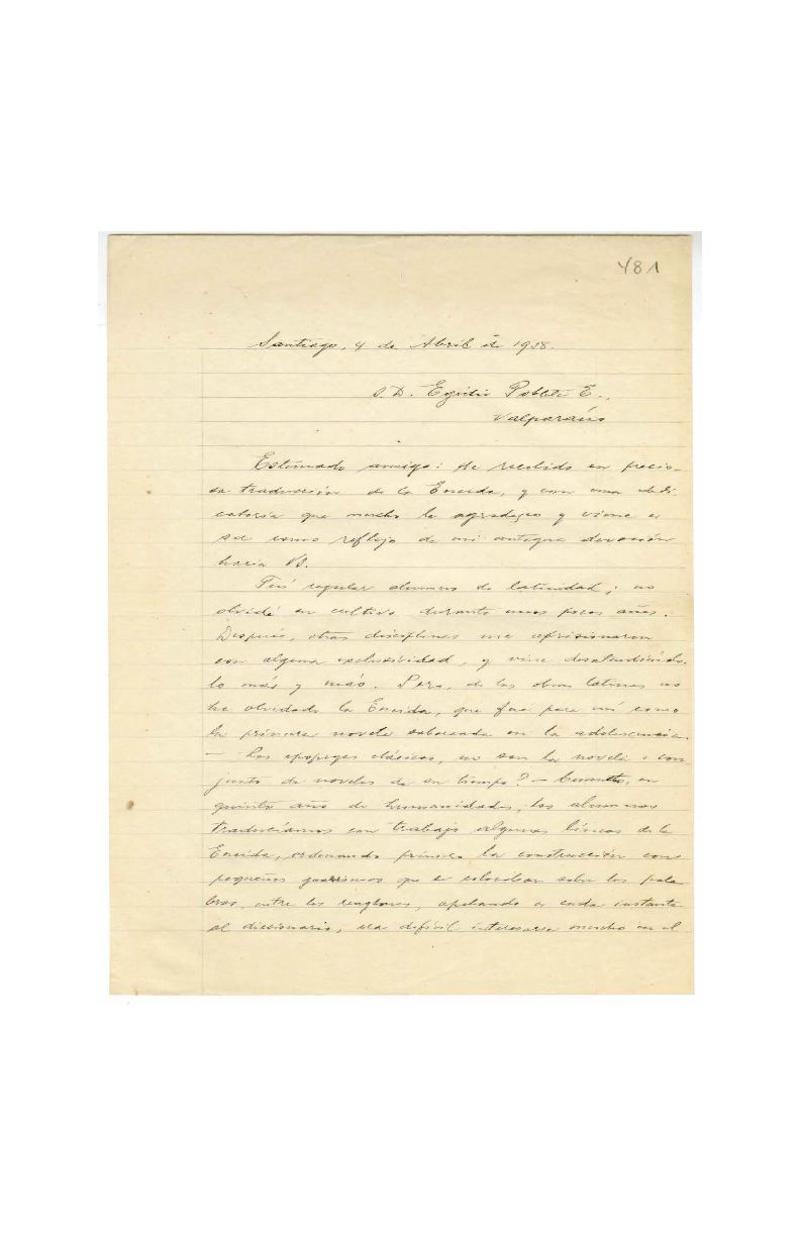 481
Santiago, 4 de Abril de 1938.
S. D. Egidio Poblete E.,
Valparaíso
Estimado amigo: He recibido su precio-
sa traducción de la Eneida, y con una dedi-
catoria que mucho le agradezco y viene a
ser como reflejo de mi antigua devoción
hacia Ud.
Fuí regular alumno de latinidad; no
olvidé su cultivo durante unos pocos años.
Después, otras disciplinas me aprisionaron
con alguna exclusividad, y vine desatendiéndo-
lo más y más. Pero, de las obras latinas no
he olvidado la Eneida, que fue para mí como
la primera novela saboreada en la adolescencia.
— Las epopeyas clásicas, no son la novela o con-
junto de novelas de su tiempo? — Cuando, en
quinto año de humanidades, los alumnos
traducíamos con trabajo algunas líneas de la
Eneida, ordenando primero la construcción con
pequeños guarismos que se colocaban sobre las pala-
bras, entre los renglones, apelando a cada instante
al diccionario, era difícil interesarse mucho en el